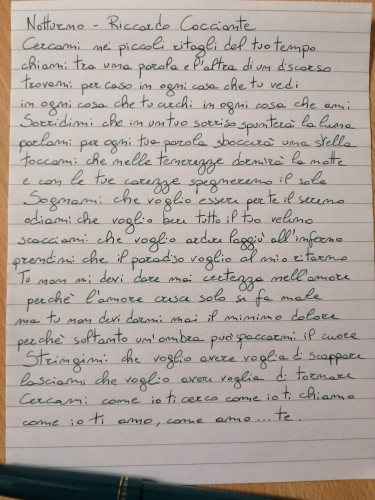 Notturno - Riccardo Cocciante
Cercami nei piccoli ritagli del tuo tempo
chiami tra una parola e l'altra di un discorso
trovami per caso in ogni cosa che tu vedi
in ogni cosa che tu cerchi in ogni cosa che ami
Sorridimi che in un tuo sorriso spunterà la luna
parlami per ogni tua parola sboccerà una stella
toccami che nelle tenerezze dormirà la notte
e con le tue carezze spegneremo il sole
Sognami che voglio essere per te il sereno
odiami che voglio bere tutto il tuo veleno
scacciami che voglio ardere laggiù all'inferno
prendimi che il paradiso voglio al mio ritorno
Tu non mi devi dare mai certezza nell'amore
perchè l'amore cresce solo se fa male
ma tu non devi darmi mai il minimo dolore
perchè soltanto un'ombra può spaccarmi il cuore
Stringimi che voglio avere voglia di scappare
lasciami che voglio avere voglia di tornare
Cercami come io ti cerco come io ti chiamo
come io ti amo, come amo ... te.